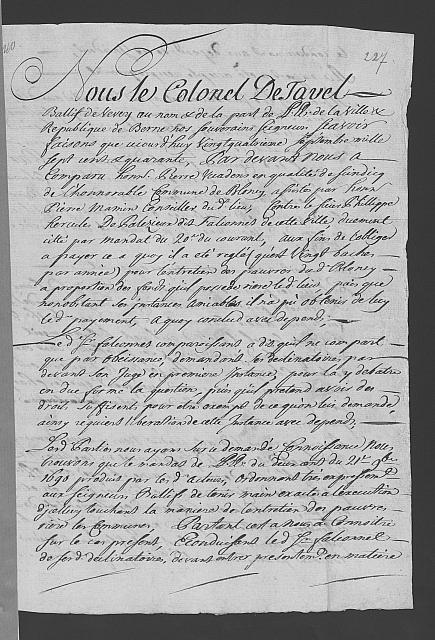 227
Nous le Colonel De Tavel
Ballif de Vevey au nom & de la part de L.Ex. de la Ville &
Republique de Berne nos souverains Seigneurs sçavoir
faisons que cejourd'huy Vingtquatrieme septembre mille
sept cent & quarante, Par devant Nous a
Comparu honn. Pierre en qualité de sindicq
de l'honnorable Commune de Blonay assistés par honn
Pierre Mamin Conseiller du d. lieu, Contre le sieur Philippe
Hercule De Palezieux dit Falconnet de cette Ville duement
citté par mandat du 20e du courant, aux fins de l'obliger
a payer ce a quoy il a eté reglé Vingt baches
par année pour l'entretien des pauvres du d. Blonay
a proportion des fonds qu'il possede riere le d. lieu, puis que
nonobstant ses instances amiables il n'a pû obtenir de luy
le d. payement, a quoy conclud avec depends;
Le d. Sr. Falconnet comparoissant a dit, qu'il ne compart
que par obeissance, demandant son declinatoire, par
devant son Juge en premiere instance, pour la y debatre
en due forme la question, puis qu'il pretend avoir des
droits suffisents, pour etre exempt de ce qu'on luy demande,
ainsy requiert liberation de cette instance avec depends;
Les d. Parties nous ayans sur ce demandé Connoissance Nous
trouvons que le mandat de L.Ex. du 21e
1690 produit par le d. acteur, ordonnant tres expressem.
aux Seigneurs Ballifs de tenir main exacte a l'execution
d'jcelluy touchant la maniere de l'entretien des pauvres
riere les Communes, Partant c'est a nous a Connoitre
sur le cas present, Econduisant le d. Sr. Falconnet
de son d. declinatoire, devant entrer presentem. en matiere